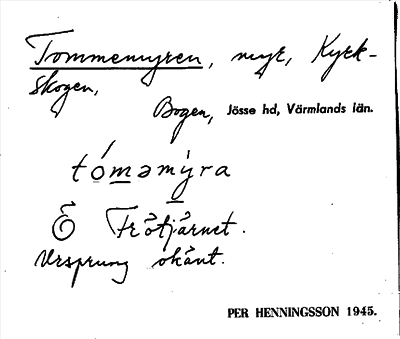 Tommemyren, myr, Kyrk-
skogen,
Bogen, Jösse hd, Värmlands län.
tóməmỳra
Ö Frötjärnet.
Ursprung okänt.
PER HENNINGSSON 1945.